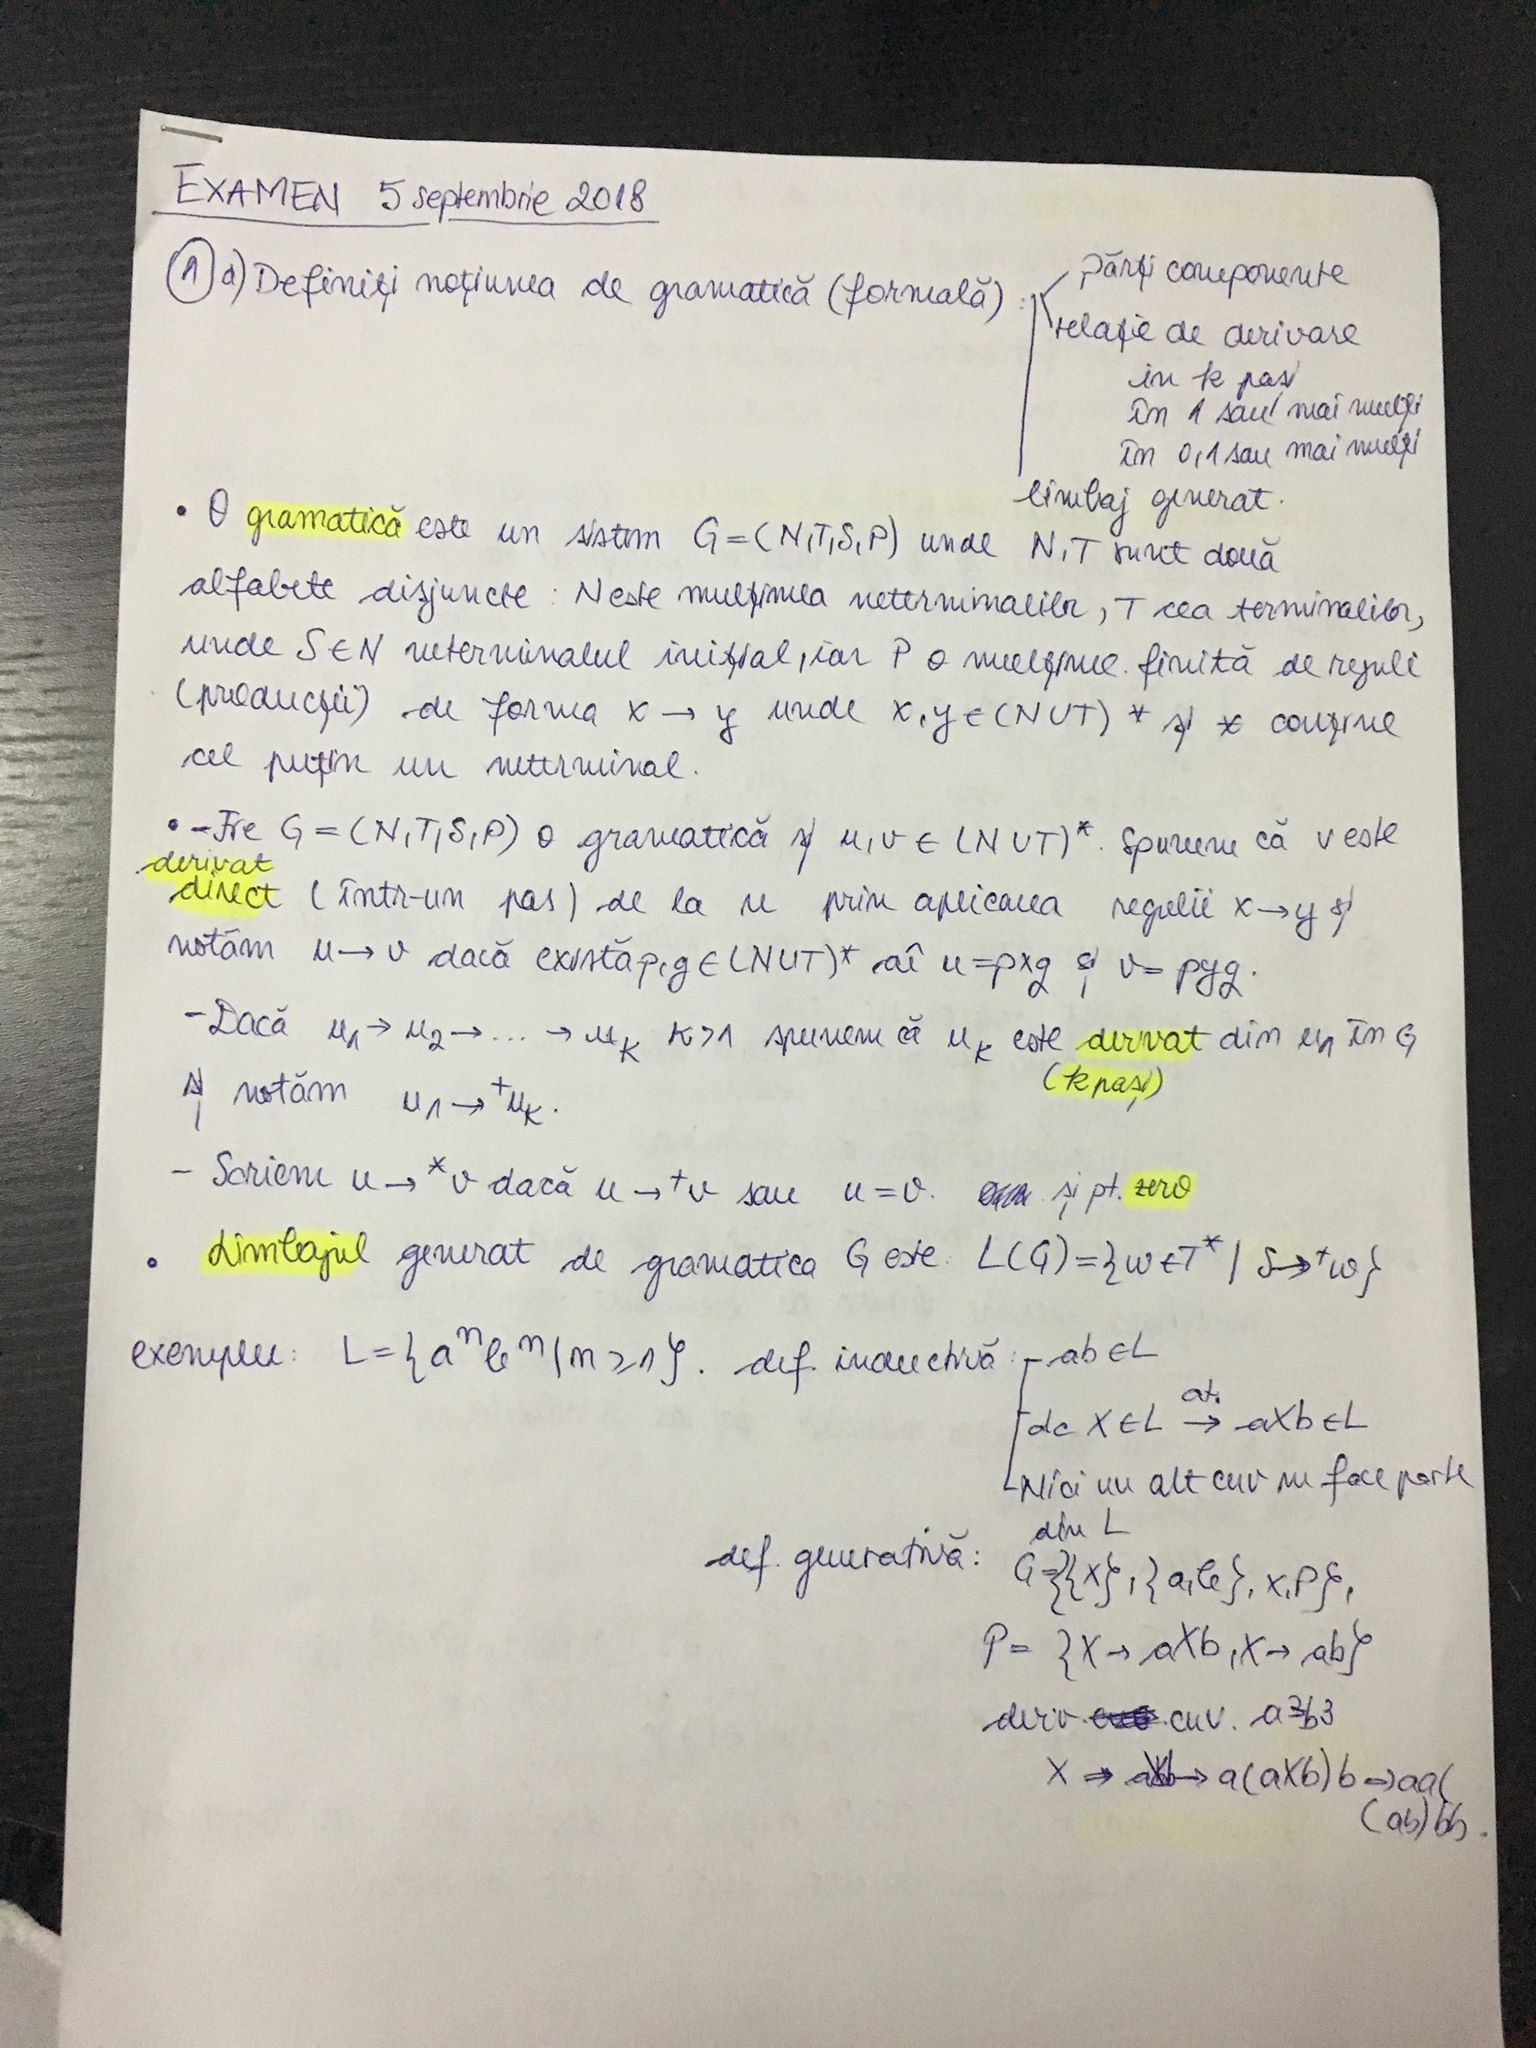 EXAMEN 5 septembrie 2018
① a) Definiți noțiunea de gramatică (formală) :
părți componente
relație de derivare
in k pași
în 1 sau mai mulți
în 0,1 sau mai mulți
limbaj generat.
• O gramatică este un sistem G=(N,T,S,P) unde N,T sunt două
alfabete disjuncte : N este mulțimea neterminalilor, T cea terminalilor,
unde S∈N neterminalul inițial, iar P o mulțime finită de reguli
(producții) de forma x → y unde x,y∈(N∪T)* și x conține
cel puțin un neterminal.
• - Fie G=(N,T,S,P) o gramatică și u,v ∈ (N∪T)*. Spunem că v este
derivat
direct (într-un pas) de la u prin aplicarea regulii x→y și
notăm u→v dacă există p,q∈(N∪T)* aî u=pxq și v=pyq.
- Dacă u₁→u₂→...→u_k k>1 spunem că u_k este derivat din u₁ în G
(k pași)
și notăm u₁→⁺u_k.
- Scriem u→*v dacă u→⁺v sau u=v. și pt. zero
• Limbajul generat de gramatica G este L(G)={w∈T* | S→⁺w}
exemplu: L={aⁿbⁿ|n≥1}. def. inductivă : - ab∈L
- dc X∈L →^{at.} aXb∈L
- Nici un alt cuv nu face parte
din L
def. generativă: G={{X},{a,b},X,P},
P= {X→aXb, X→ab}
deriv. cuv. a3b3
X ⇒ aXb → a(aXb)b → aa(
(ab)bb.